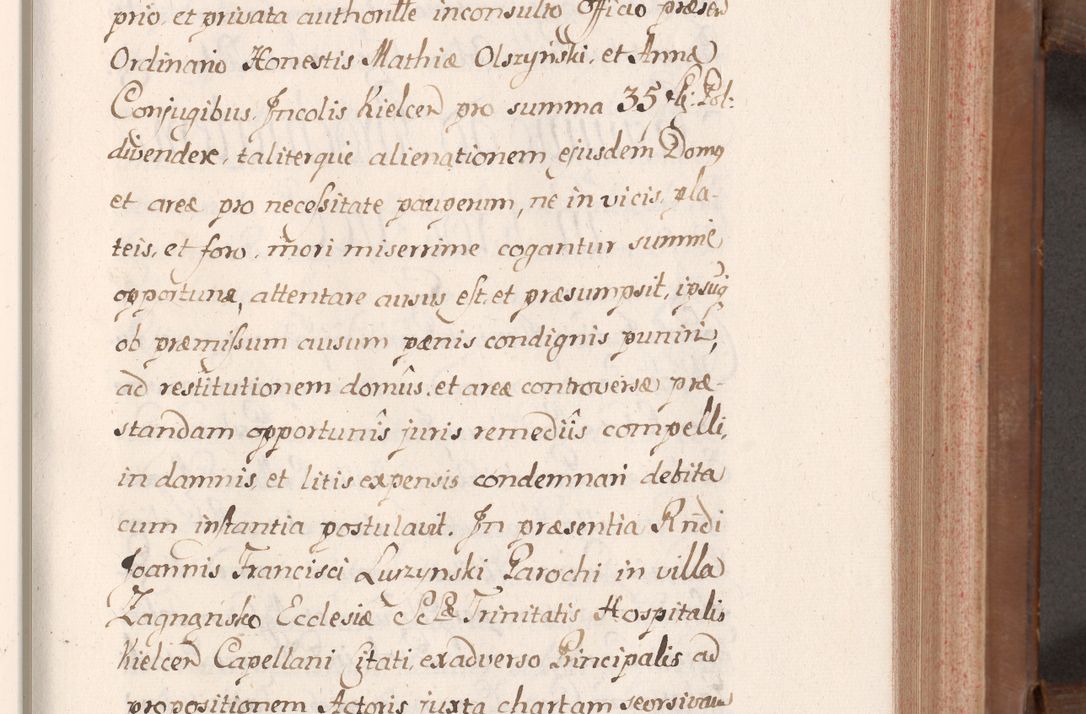 prio, et privata authoritte inconsulto Officio præsen
Ordinario Honestis Mathiæ Olszyński, et Annæ
Conjugibus, Incolis Kielcen pro summa 35 Pol:
divendere, taliterque alienationem ejusdem Domus
et areæ pro necessitate pauperum, ne in vicis, pla-
teis, et foro, mori miserrime cogantur summe
opportunæ, attentare ausus est, et præsumpsit, ipsumq
ob præmissum ausum pænis condignis puniri,
ad restitutionem domûs, et areæ controversæ præ-
standam opportunîs juris remedîis compelli,
in damnis, et litis expensis condemnari debita
cum instantia postulavit. In præsentia Rndi
Joannis Francisci Luszynski Parochi in villa
Zagnańsko Ecclesiæ SSæ Trinitatis Hospitalis
Kielcen Capellani Citati, ex adverso Principalis ad
propositionem Actoris juxta chartam seorsivam